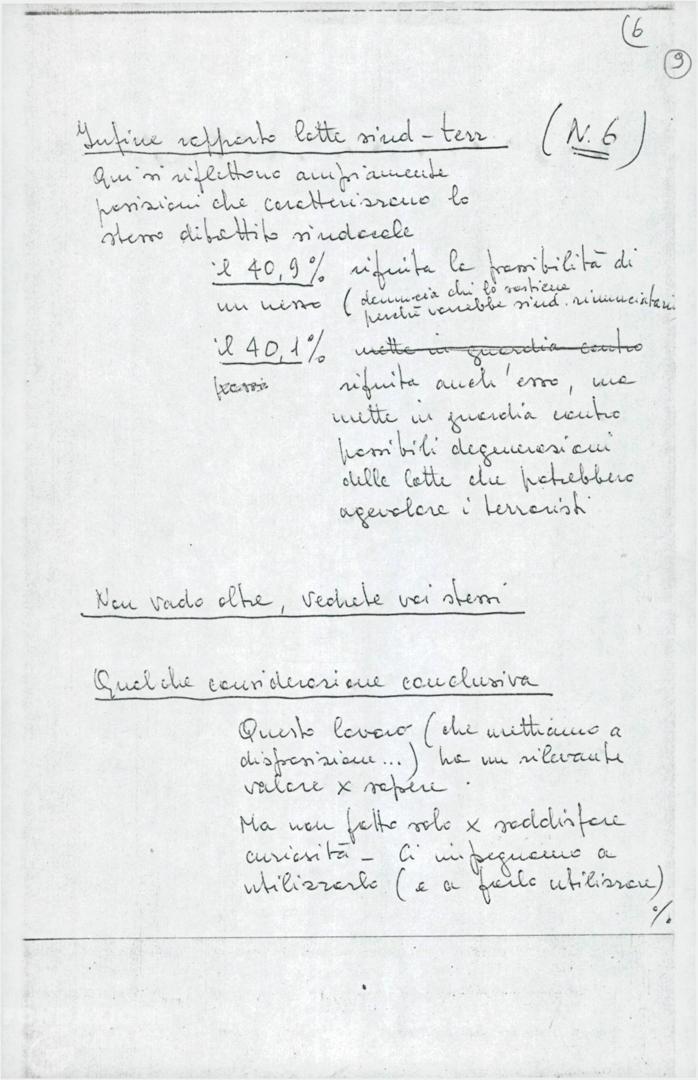 (6
9
Infine rapporto lotte sind-terr (N.6)
Qui si riflettono ampiamente
posizioni che caratterizzano lo
stesso dibattito sindacale
il 40,9% rifiuta la possibilità di
un nesso (denuncia chi lo sostiene
perché vorrebbe sind. rinunciatari
il 40,1% mette in guardia contro
rifiuta anch'esso, ma
mette in guardia contro
possibili degenerazioni
delle lotte che potrebbero
agevolare i terroristi
Non vado oltre, vedrete voi stessi
Qualche considerazione conclusiva
Questo lavoro (che mettiamo a
disposizione...) ha un rilevante
valore x sapere.
Ma non fatto solo x soddisfare
curiosità - Ci impegniamo a
utilizzarlo (e a farlo utilizzare)
%.